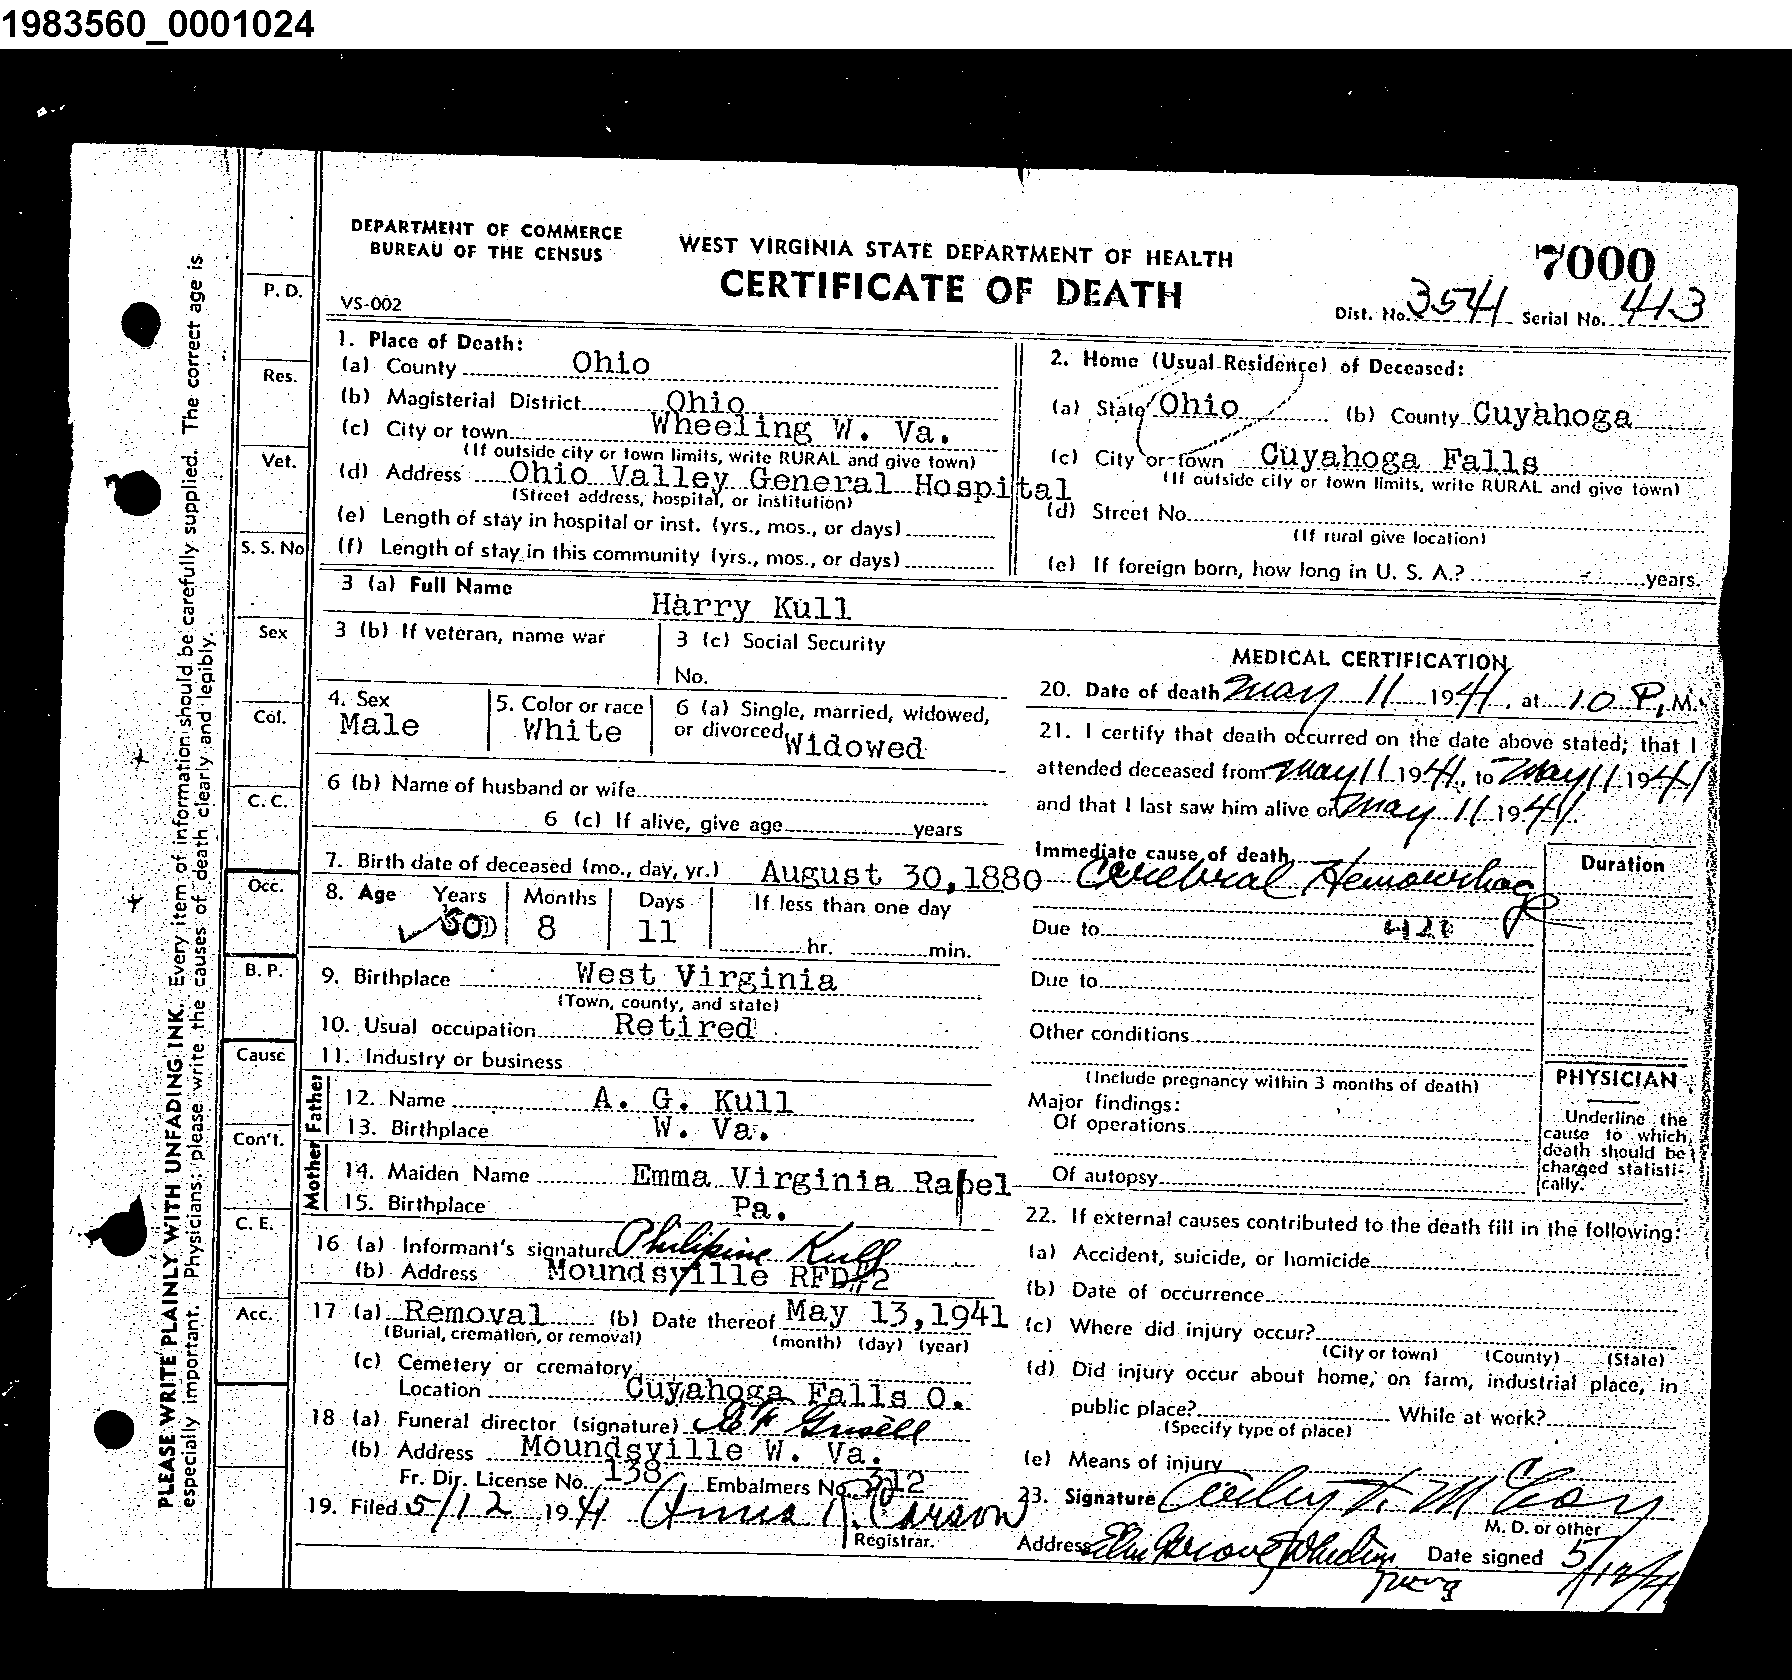 1983560_0001024
DEPARTMENT OF COMMERCE
BUREAU OF THE CENSUS
WEST VIRGINIA STATE DEPARTMENT OF HEALTH
CERTIFICATE OF DEATH
7000
VS-002
Dist. No. 3541 Serial No. 413
PLEASE WRITE PLAINLY WITH UNFADING INK. Every item of information should be carefully supplied. The correct age is
especially important. Physicians: please write the causes of death clearly and legibly.
P. D.
Res.
Vet.
S. S. No
Sex
Col.
C. C.
Occ.
B. P.
Cause
Con't.
C. E.
Acc.
1. Place of Death:
(a) County Ohio
(b) Magisterial District Ohio
(c) City or town Wheeling W. Va.
(If outside city or town limits, write RURAL and give town)
(d) Address Ohio Valley General Hospital
(Street address, hospital, or institution)
(e) Length of stay in hospital or inst. (yrs., mos., or days)
(f) Length of stay in this community (yrs., mos., or days)
2. Home (Usual Residence) of Deceased:
(a) State Ohio (b) County Cuyahoga
(c) City or town Cuyahoga Falls
(If outside city or town limits, write RURAL and give town)
(d) Street No.
(If rural give location)
(e) If foreign born, how long in U. S. A.? years.
3 (a) Full Name Harry Kull
3 (b) If veteran, name war
3 (c) Social Security
No.
4. Sex
Male
5. Color or race
White
6 (a) Single, married, widowed,
or divorced Widowed
6 (b) Name of husband or wife
6 (c) If alive, give age years
7. Birth date of deceased (mo., day, yr.) August 30,1880
8. Age Years Months Days If less than one day
60 8 11 hr. min.
9. Birthplace West Virginia
(Town, county, and state)
10. Usual occupation Retired
11. Industry or business
Father
12. Name A. G. Kull
13. Birthplace W. Va.
Mother
14. Maiden Name Emma Virginia Rapel
15. Birthplace Pa.
16 (a) Informant's signature Philipine Kull
(b) Address Moundsville RFD#2
17 (a) Removal (b) Date thereof May 13,1941
(Burial, cremation, or removal) (month) (day) (year)
(c) Cemetery or crematory
Location Cuyahoga Falls O.
18 (a) Funeral director (signature)
(b) Address Moundsville W. Va.
Fr. Dir. License No. 138 Embalmers No. 312
19. Filed 5/12 1941 Anna Carson
Registrar.
MEDICAL CERTIFICATION
20. Date of death May 11 1941, at 10 P. M.
21. I certify that death occurred on the date above stated; that I
attended deceased from May 11 1941, to May 11 1941
and that I last saw him alive on May 11 1941.
Immediate cause of death
Cerebral Hemorrhage
Duration
Due to
Due to
Other conditions
(Include pregnancy within 3 months of death)
Major findings:
Of operations
Of autopsy
PHYSICIAN
Underline the
cause to which
death should be
charged statisti-
cally.
22. If external causes contributed to the death fill in the following:
(a) Accident, suicide, or homicide
(b) Date of occurrence
(c) Where did injury occur?
(City or town) (County) (State)
(d) Did injury occur about home, on farm, industrial place, in
public place? While at work?
(Specify type of place)
(e) Means of injury
23. Signature McCoy
M. D. or other
Address Elm Grove Wheeling Date signed 5/12/41
W Va